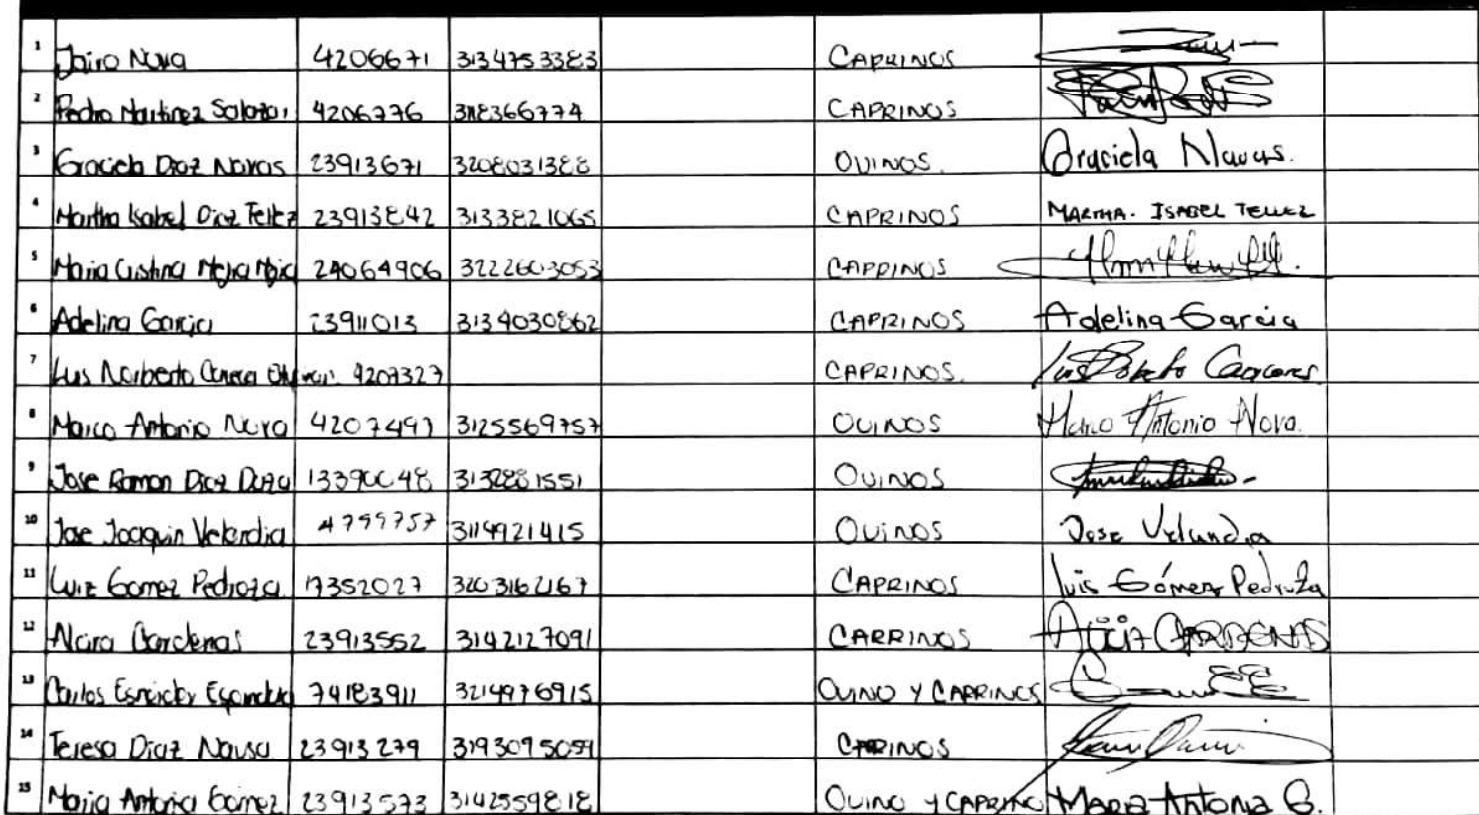 1 Jairo Nova 4206671 3134753383 CAPRINOS
2 Pedro Martinez Salazar 4206776 318366774 CAPRINOS
3 Graciela Diaz Navas 23913671 3208031388 OVINOS. Graciela Navas.
4 Martha Isabel Diaz Tellez 23913842 3133821065 CAPRINOS MARTHA. ISABEL TELLEZ
5 Maria Cristina Mejia Mejia 24064906 3222603053 CAPRINOS
6 Adelina Garcia 23911013 3134030862 CAPRINOS Adelina Garcia
7 Luis Norberto 4207327 CAPRINOS.
8 Marco Antonio Nova 4207497 3125569757 OVINOS Marco Antonio Nova.
9 Jose Ramon Diaz 13390048 3132881551 OVINOS
10 Jose Joaquin Velandia 4799757 3114921415 OVINOS Jose Velandia
11 Luiz Gomez Pedroza 17352027 3203162167 CAPRINOS luis Gómez Pedroza
12 Cardenas 23913552 3142127091 CARRINOS CARDENAS
13 Carlos 74183911 3214976915 OVINO Y CAPRINOS
14 Teresa Diaz 23913279 3193095059 CAPRINOS
15 Maria Antonia Gomez 23913573 3142559818 OVINO Y CAPRINO MARIA Antonia G.